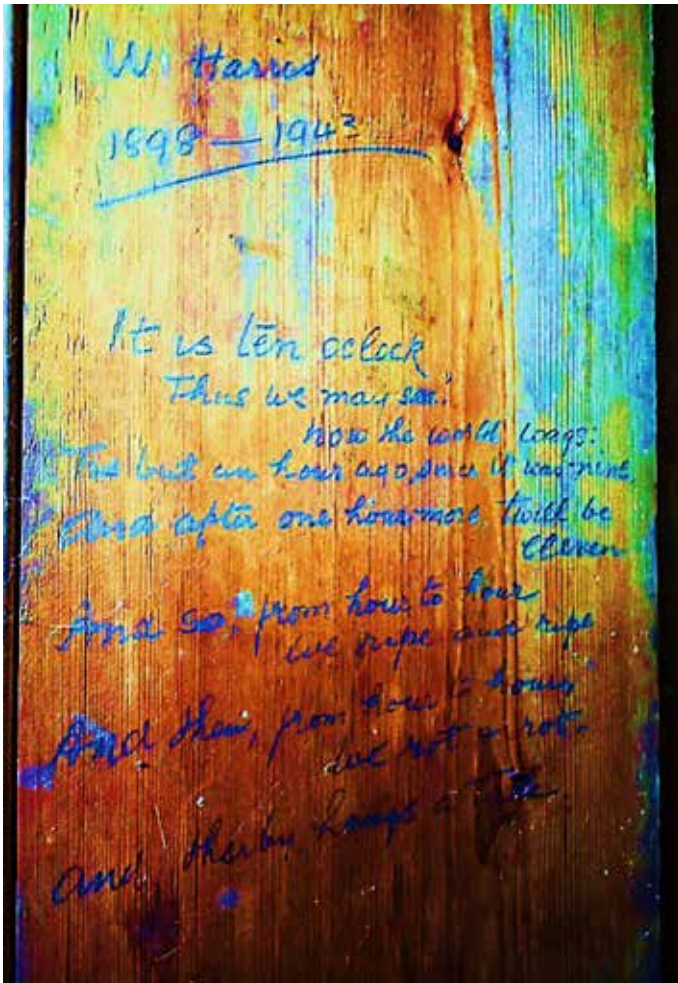 W. Harris
1898 — 1943
It is ten oclock
Thus we may see.
how the world wags:
Tis but an hour ago, since it was nine,
And after one hour more, twill be
Eleven
And so, from hour to hour
we ripe and ripe
And then, from hour to hour,
we rot & rot.
And, therby hangs a tale.